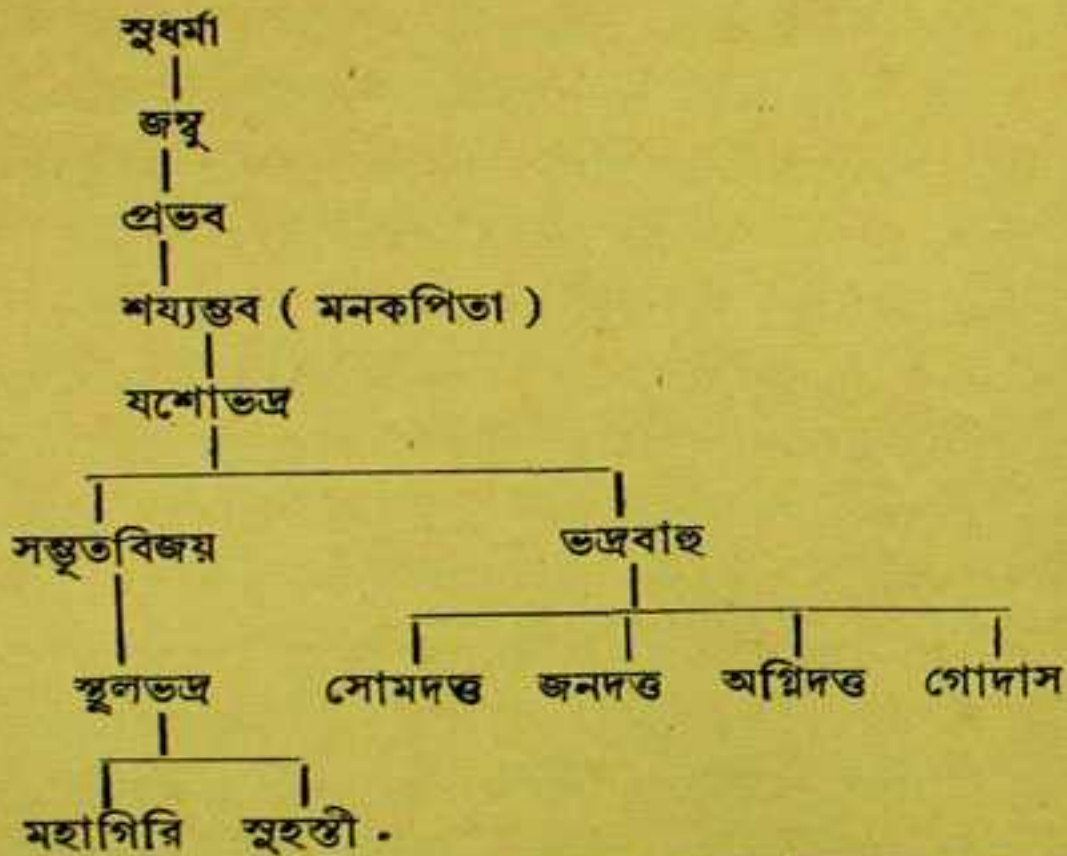 সুধর্মা
জম্বু
প্রভব
শয্যম্ভব ( মনকপিতা )
যশোভদ্র
সম্ভূতবিজয় ভদ্রবাহু
স্থূলভদ্র সোমদত্ত জনদত্ত অগ্নিদত্ত গোদাস
মহাগিরি সুহস্তী .